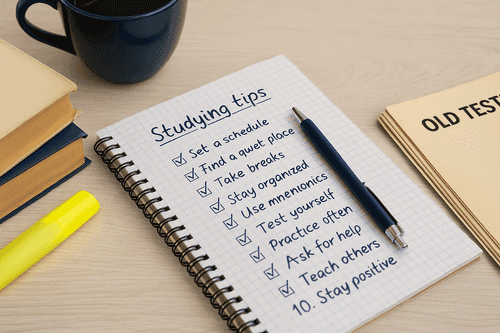 Studying tips
Set a schedule
Find a quet place
Take breaks
Stay organized
Use mnemonics
Test yourself
Practice often
Ask for help
Teach others
10. Stay positive
OLD TEST